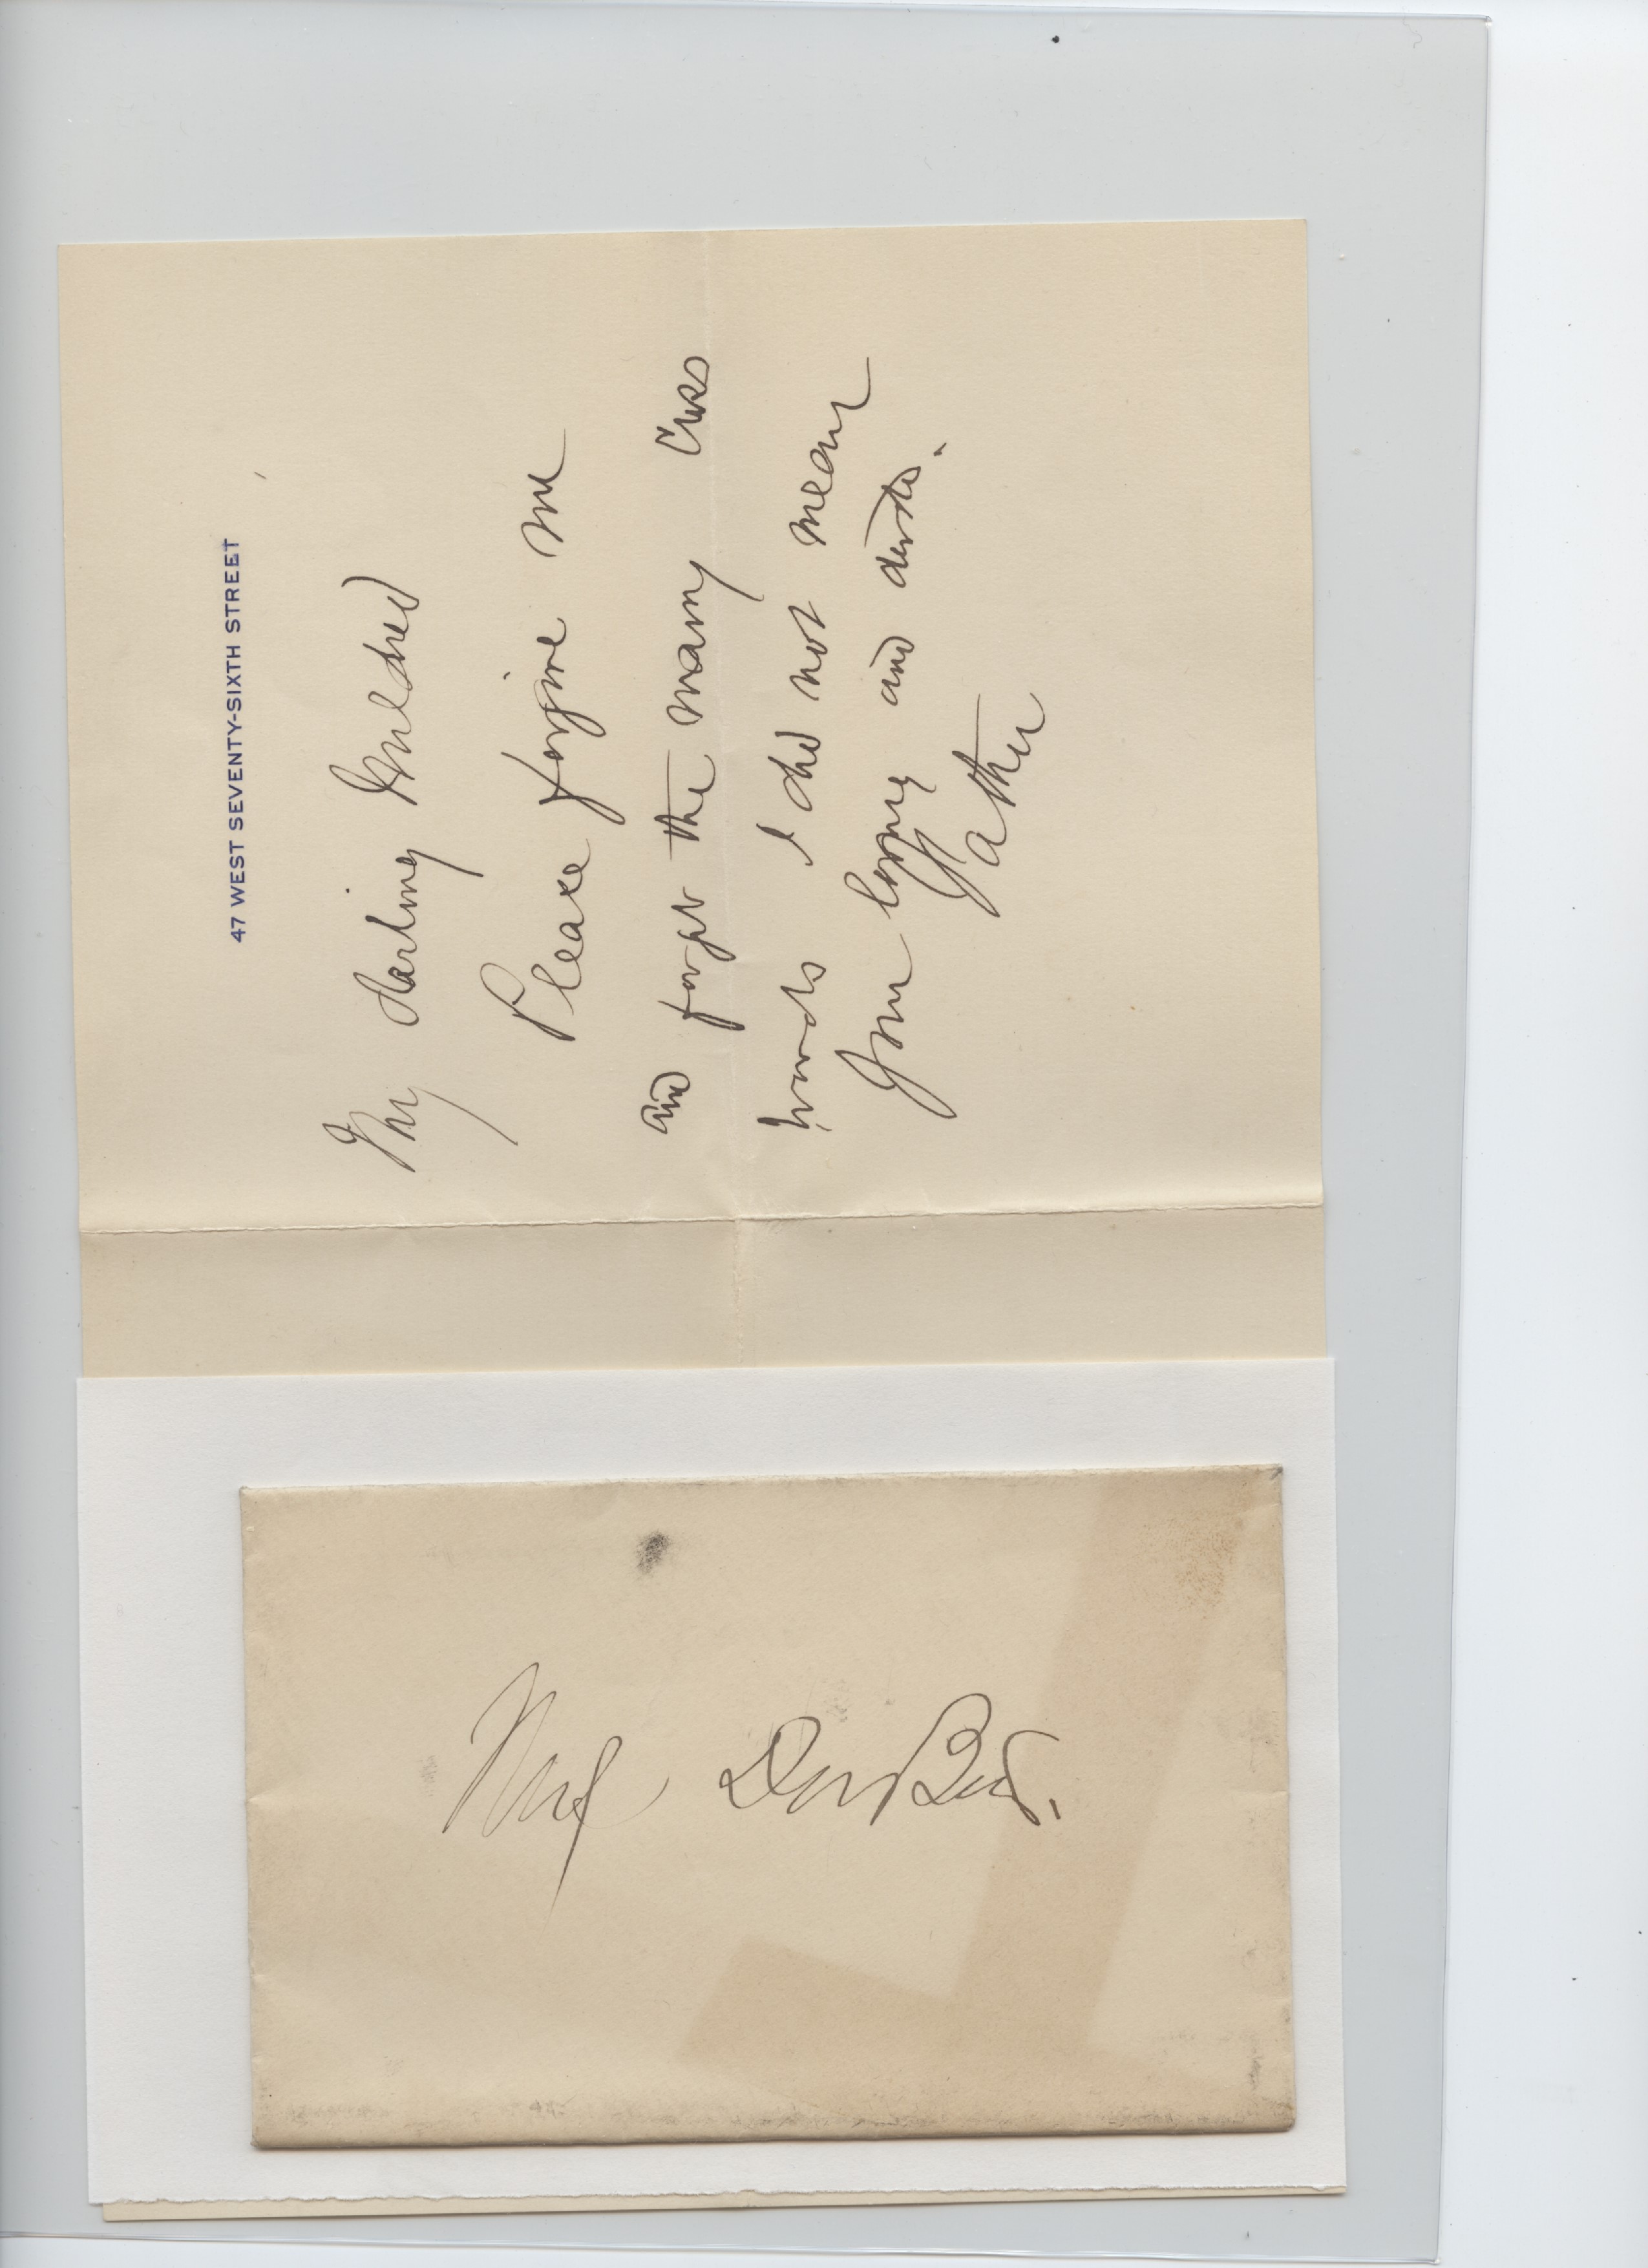 47 WEST SEVENTY-SIXTH STREET
My darling Mildred
Please forgive me
and forget the many cross
words I did not mean
Your loving and
Father